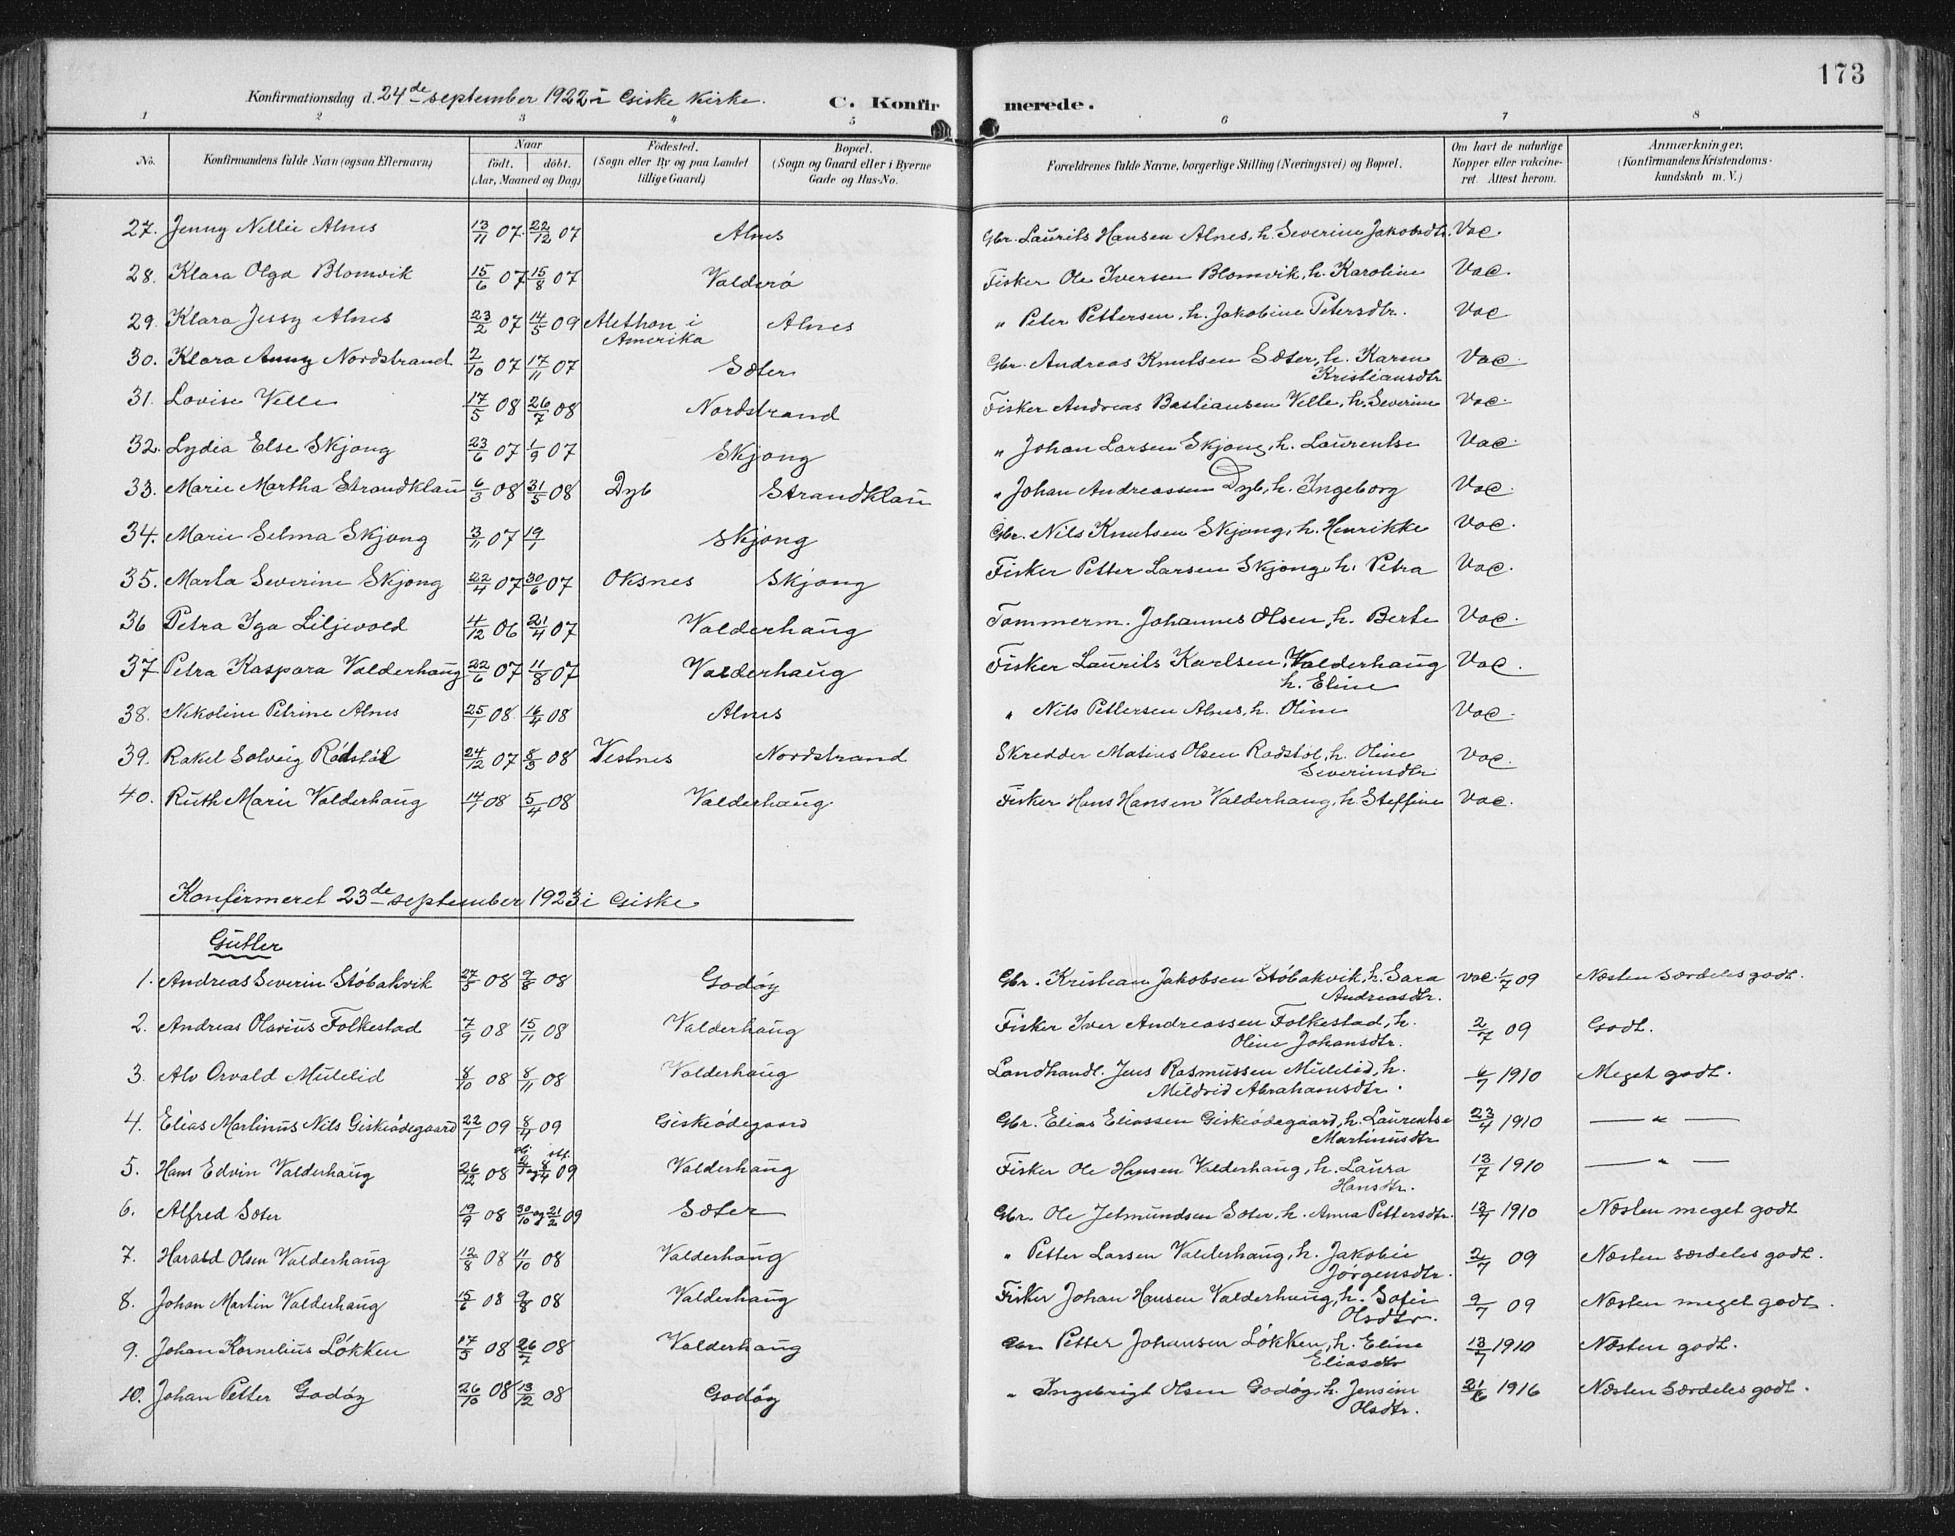 173
Konfirmationsdag d. 24de september 1922 i Giske Kirke. C. Konfirmerede.
1 2 3 4 5 6 7 8
No. Konfirmandens fulde Navn (ogsaa Efternavn) Naar født. døbt. (Aar, Maaned og Dag) Fødested. (Sogn eller By og paa Landet tillige Gaard) Bopæl. (Sogn og Gaard eller i Byerne Gade og Hus-No. Forældrenes fulde Navne, borgerlige Stilling (Næringsvei) og Bopæl. Om havt de naturlige Kopper eller vakcineret. Attest herom. Anmærkninger, (Konfirmandens Kristendomskundskab m. V.)
27. Jenny Nellie Alnes 13/11 07. 22/12 07 Alnes Gbr. Laurits Hansen Alnes, h. Severine Jakobsdtr. Vac.
28. Klara Olga Blomvik 15/6 07 15/8 07 Valderø Fisker Ole Iversen Blomvik, h. Karoline Vac.
29. Klara Jessy Alnes 23/2 07 14/5 09 Methon i Amerika Alnes " Peter Pettersen, h. Jakobine Petersdtr. Vac
30. Klara Anny Nordstrand 2/10 07 17/11 07 Sæter Gbr. Andreas Knutsen Sæter, h. Karen Kristiansdtr Vac.
31. Lovise Velle 17/5 08 26/7 08 Nordstrand Fisker Andreas Bastiansen Velle, h. Severine Vac.
32. Lydia Else Skjong 23/6 07 1/9 07 Skjong " Johan Larsen Skjong, h. Laurentse Vac.
33. Marie Martha Strandklau 6/3 08 31/5 08 Dyb Strandklau " Johan Andreassen Dyb, h. Ingeborg Vac.
34. Marie Selma Skjong 3/11 07 19/1 Skjong Gbr. Nils Knutsen Skjong, h. Henrikke Vac.
35. Marta Severine Skjong 22/4 07 30/6 07 Oksnes Skjong Fisker Petter Larsen Skjong, h. Petra Vac.
36 Petra Iga Liljevold 4/12 06 21/4 07 Valderhaug Tømmerm. Johannes Olsen, h. Berte Vac.
37 Petra Kaspara Valderhaug 22/6 07 11/8 07 Valderhaug Fisker Laurits Karlsen, Valderhaug h. Eline Vac.
38. Nikoline Petrine Alnes 25/1 08 16/4 08 Alnes " Nils Pettersen Alnes, h. Oline Vac.
39. Rakel Solveig Rødstøl 24/12 07 8/3 08 Vestnes Nordstrand Skredder Matius Olsen Rødstøl, h. Oline Severinsdtr. Vac.
40. Ruth Marie Valderhaug 14/1 08 5/4 08 Valderhaug Fisker Hans Hansen Valderhaug, h. Steffine Vac.
Konfirmeret 23de september 1923 i Giske
Gutter
1. Andreas Severin Støbakvik 27/5 08 9/8 08 Godøy Gbr. Kristian Jakobsen Støbakvik, h. Sara Andreasdtr. Vac. 1/7 09 Næsten særdeles godt.
2. Andreas Olarius Folkestad 7/9 08 15/11 08 Valderhaug Fisker Iver Andreassen Folkestad, h. Oline Johansdtr. 2/7 09 Godt.
3. Alv Osvald Mulelid 8/10 08 8/11 08 Valderhaug Landhandl. Jens Rasmussen Mulelid, h. Mildrid Abrahamsdtr. 6/7 1910 Meget godt.
4. Elias Martinus Nils Giskeødegaard 22/1 09 8/4 09 Giskeødegaard Gbr. Elias Eliassen Giskeødegaard, h. Laurentse Martinusdtr 23/4 1910 — " —
5. Hans Edvin Valderhaug 26/12 08 og 8/4 09 Valderhaug Fisker Ole Hansen Valderhaug, h. Laura Hansdtr. 13/7 1910 — " —
6. Alfred Sæter 19/9 08 30/10 og 21/2 09 Sæter Gbr. Ole Jetmundsen Sæter, h. Anna Pettersdtr. 13/7 1910 Næsten meget godt
7. Harald Olsen Valderhaug 12/8 08 11/10 08 Valderhaug " Petter Larsen Valderhaug, h. Jakobie Jørgensdtr. 2/7 09 Næsten særdeles godt.
8. Johan Martin Valderhaug 15/6 08 9/8 08 Valderhaug Fisker Johan Hansen Valderhaug, h. Sofie Olsdtr. 9/7 09 Næsten meget godt.
9. Johan Kornelius Løkken 17/5 08 26/7 08 Valderhaug Gbr. Petter Johansen Løkken, h. Eline Eliasdtr 13/7 1910 Næsten godt.
10. Johan Petter Godøy 26/10 08 13/12 08 Godøy " Ingebrigt Olsen Godøy, h. Jensine Olsdtr. 21/6 1916 Næsten særdeles godt.